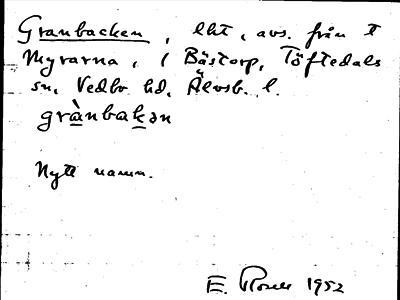 Granbacken, lht, avs. från t
Myrarna, i Bästorp, Töftedals
sn, Vedbo hd, Älvsb. l.
grànbakən
Nytt namn.
E. 1952